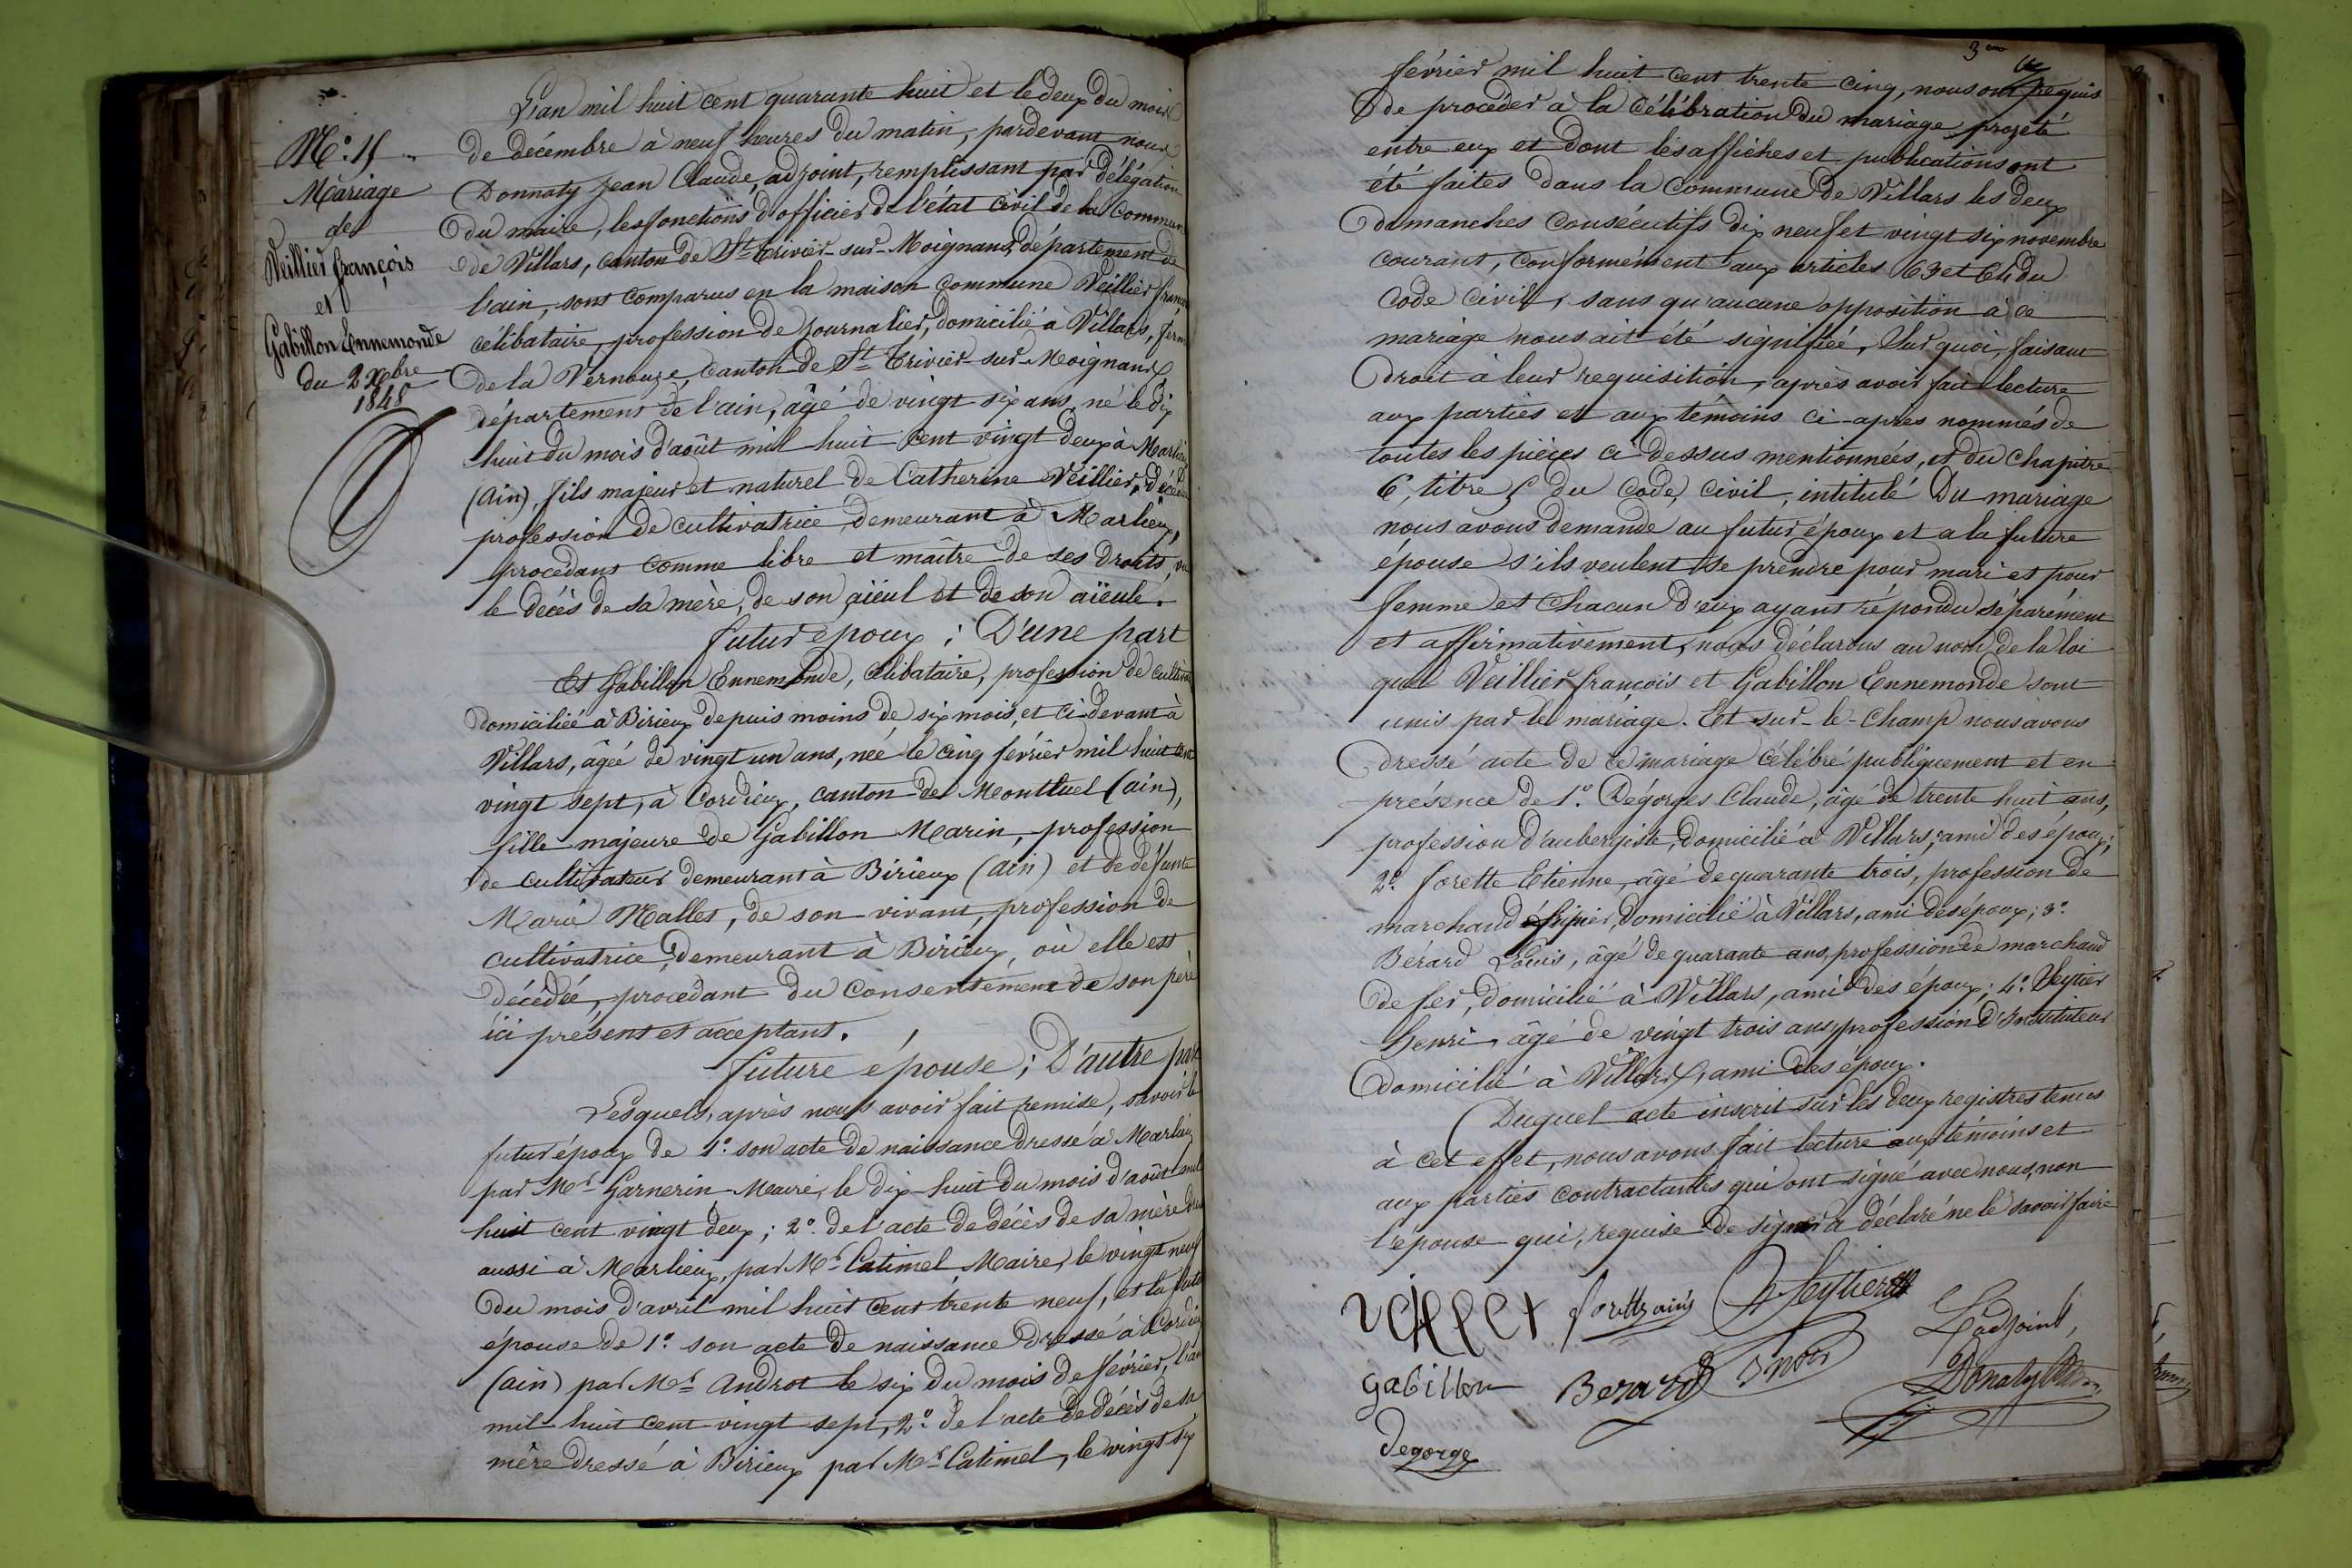 Mariage
de
Veillier françois
et
Gabillon Ennemonde
du 2 Xbre
1848
L'an mil huit cent quarante huit et le deux du mois
de décembre à neuf heures du matin, pardevant nous
Donnaty Jean Claude, adjoint, remplissant par délégation
du maire, les fonctions d'officier de l'état civil de la Commune
de Villars, canton de St Trivier-sur-Moignans, département de
l'ain, sont comparus en la maison commune Veillier françois
célibataire, profession de journalier, domicilié à Villars, ferme
de la Vernouze, canton de St Trivier sur Moignans
département de l'ain, âgé de vingt six ans, né le dix
huit du mois d'août mil huit cent vingt deux à Marlieux
(Ain) fils majeur et naturel de Catherine Veillier, décédée
profession de cultivatrice, demeurant à Marlieux,
procédant comme libre et maître de ses droits, vu
le décès de sa mère, de son aïeul et de son aïeule.
futur époux ; D'une part
Et Gabillon Ennemonde, célibataire, profession de cultivatrice
domiciliée à Birieux depuis moins de six mois, et ci-devant à
Villars, âgée de vingt un ans, née le cinq février mil huit cent
vingt sept, à Cordieux, canton de Montluel (ain),
fille majeure de Gabillon Marin, profession
de cultivateur demeurant à Birieux (ain) et de défunte
Marie Mallet, de son vivant, profession de
cultivatrice, demeurant à Birieux, où elle est
décédée, procédant du consentement de son père
ici présent et acceptant.
future épouse ; D'autre part
Lesquels, après nous avoir fait remise, savoir le
futur époux de 1º. son acte de naissance dressé à Marlieux
par Mr Garnerin Maire, le dix-huit du mois d'août mil
huit cent vingt deux ; 2º. de l'acte de décès de sa mère dressé
aussi à Marlieux, par Mr Catimel Maire, le vingt neuf
du mois d'avril mil huit cent trente neuf, et la future
épouse de 1º. son acte de naissance dressé à Cordieux
(ain) par Mr Androt le six du mois de février, l'an
mil huit cent vingt sept, 2º. de l'acte de décès de sa
mère dressé à Birieux par Mr Catimel, le vingt six
février mil huit cent trente cinq, nous ont requis
de procéder à la célébration du mariage projeté
entre eux et dont les affiches et publications ont
été faites dans la commune de Villars les deux
dimanches consécutifs dix neuf et vingt six novembre
courant, conformément aux articles 63 et 64 du
Code civil, sans qu'aucune opposition à ce
mariage nous ait été signifiée, Sur quoi, faisant
droit à leur requisition, après avoir fait lecture
aux parties et aux témoins ci-après nommés de
toutes les pièces ci-dessus mentionnées, et du chapitre
6, titre 5 du Code civil, intitulé Du mariage
nous avons demandé au futur époux et à la future
épouse s'ils veulent se prendre pour mari et pour
femme et chacun d'eux ayant répondu séparément
et affirmativement, nous déclarons au nom de la loi
que Veillier françois et Gabillon Ennemonde sont
unis par le mariage. Et sur-le-champ nous avons
dressé acte de ce mariage célébré publiquement et en
présence de 1º. Dégorges Claude, âgé de trente huit ans,
profession d'aubergiste, domicilié à Villars, ami des époux ;
2º. forette Etienne, âgé de quarante trois, profession de
marchand domicilié à Villars, ami des époux ; 3º.
Bérard Louis, âgé de quarante ans, profession de marchand
de fer, domicilié à Villars, ami des époux ; 4º. Seytier
henri, âgé de vingt trois ans, profession d'Instituteur
domicilié à Villars, ami des époux.
Duquel acte inscrit sur les deux registres tenus
à cet effet, nous avons fait lecture aux témoins et
aux parties contractantes qui ont signé avec nous, non
l'épouse qui, requise de signer a déclaré ne le savoir faire
H Seytier
L'adjoint,
gabillon
Berard
Donaty
Degorge